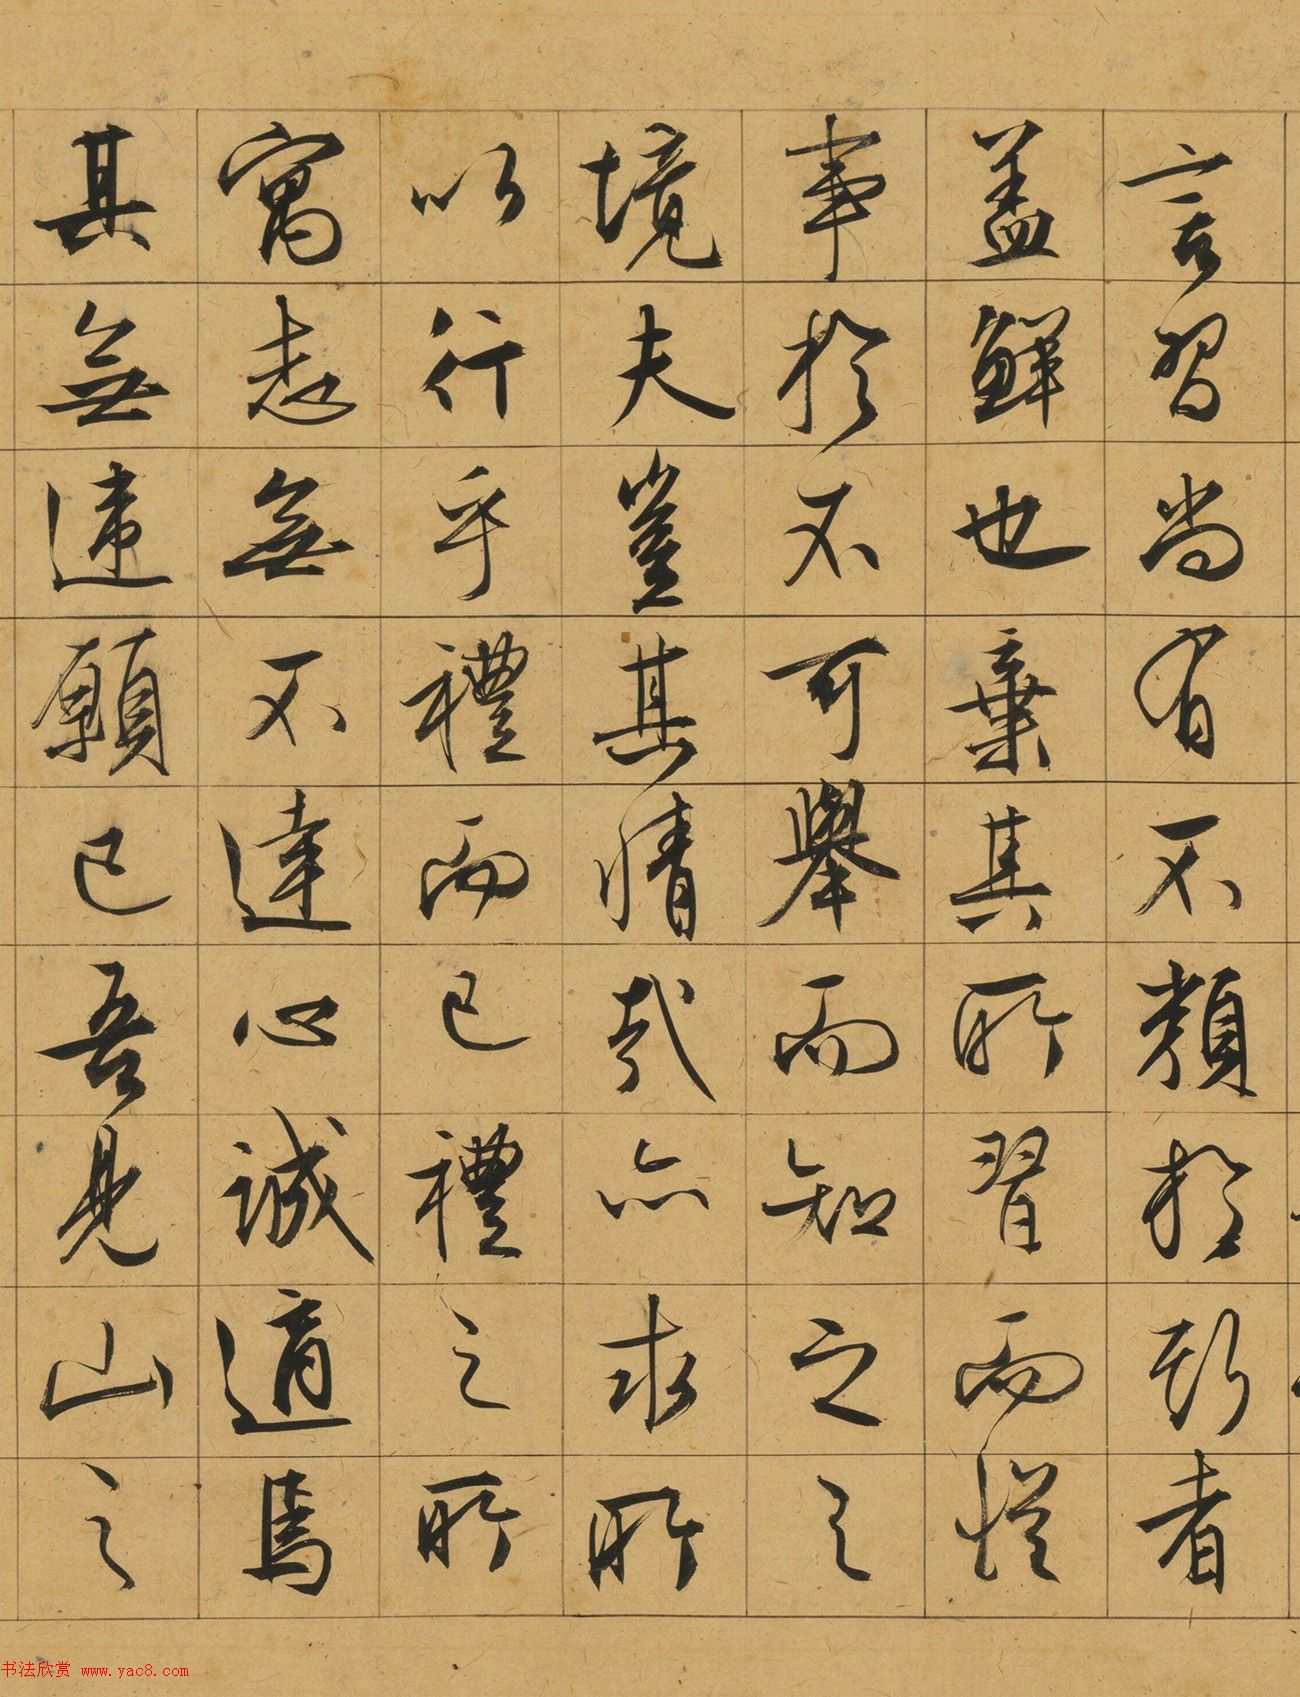 言習尚有不類於斯者
蓋鮮也棄其所習而從
事於不可舉而知之之
境夫豈其情哉亦求所
以行乎禮而已禮之所
寓志無不達心誠適焉
其無違願已吾見山之
书法欣赏 www.yac8.com